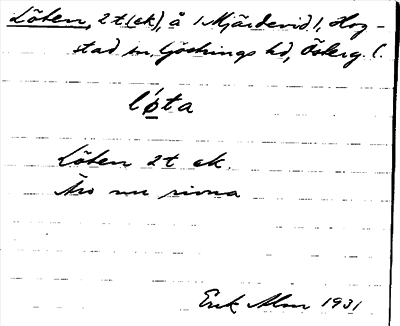 Löten, 2 t. (ek), å /Mjärdevid/, Hog-
stad sn. Göstrings hd, Österg. l.
lø̀ta
Löten 2 t ek.
Äro nu rivna
Erik Alm 1931